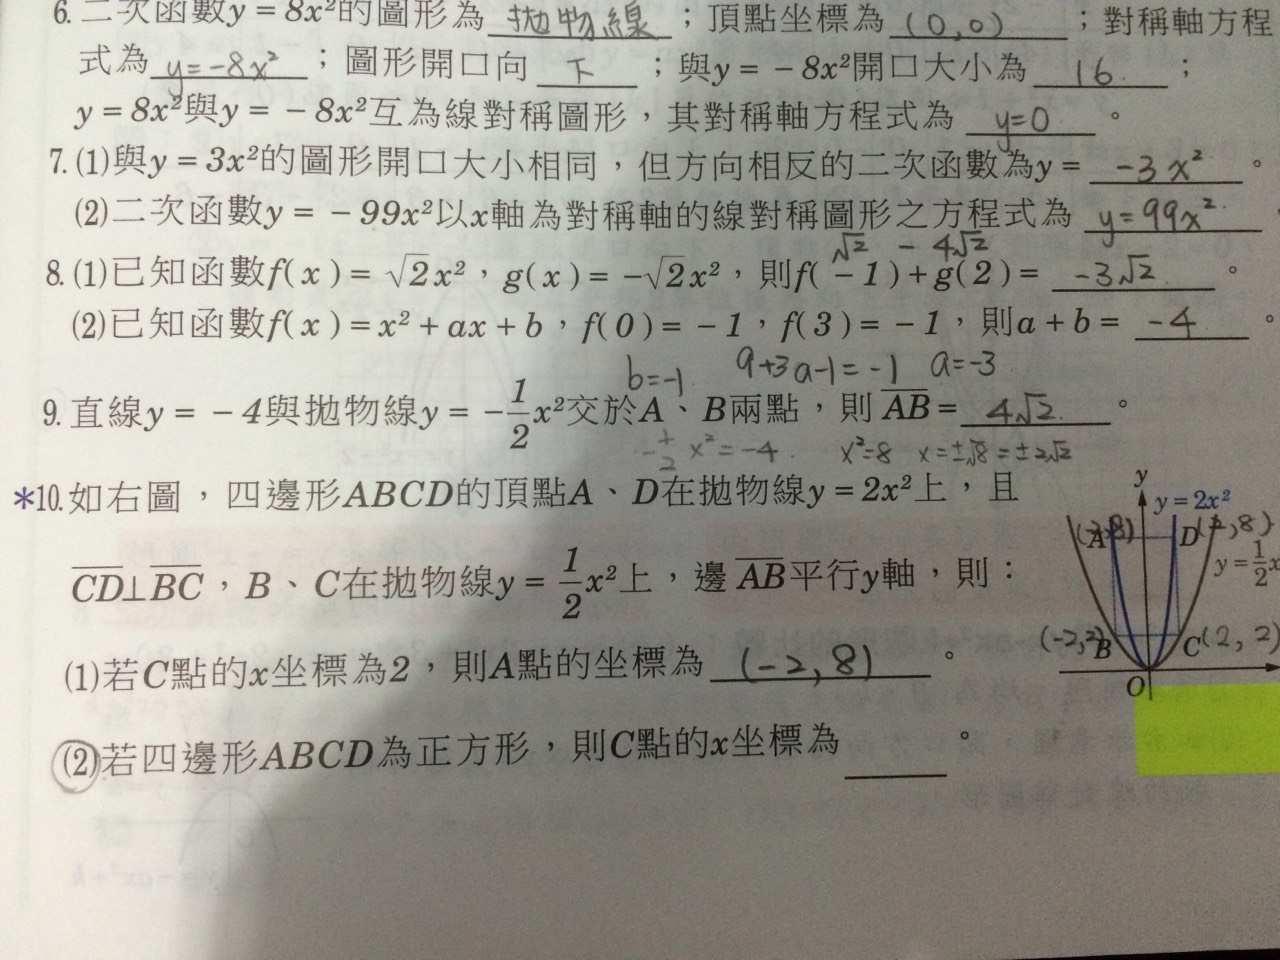 6. 二次函數y = 8x²的圖形為 拋物線 ；頂點坐標為 (0,0) ；對稱軸方程
式為 y=-8x² ；圖形開口向 下 ；與y = - 8x²開口大小為 16 ；
y = 8x²與y = - 8x²互為線對稱圖形，其對稱軸方程式為 y=0 。
7. (1)與y = 3x²的圖形開口大小相同，但方向相反的二次函數為y = -3x² 。
(2)二次函數y = - 99x²以x軸為對稱軸的線對稱圖形之方程式為 y=99x²
√2 - 4√2
8. (1)已知函數f( x ) = √2x²，g( x ) = -√2x²，則f( - 1 ) + g( 2 ) = -3√2 。
(2)已知函數f( x ) = x² + ax + b，f( 0 ) = - 1，f( 3 ) = - 1，則a + b = -4 。
b=-1 9+3a-1=-1 a=-3
9. 直線y = - 4與拋物線y = -1/2x²交於A、B兩點，則AB = 4√2 。
-1/2 x²=-4 x²=8 x=±√8=±2√2
*10. 如右圖，四邊形ABCD的頂點A、D在拋物線y = 2x²上，且
CD⊥BC，B、C在拋物線y = 1/2x²上，邊AB平行y軸，則：
(1)若C點的x坐標為2，則A點的坐標為 (-2,8) 。
(2)若四邊形ABCD為正方形，則C點的x坐標為 。
y
y = 2x²
A D
y = 1/2x
(-2,2) B C (2, 2)
O